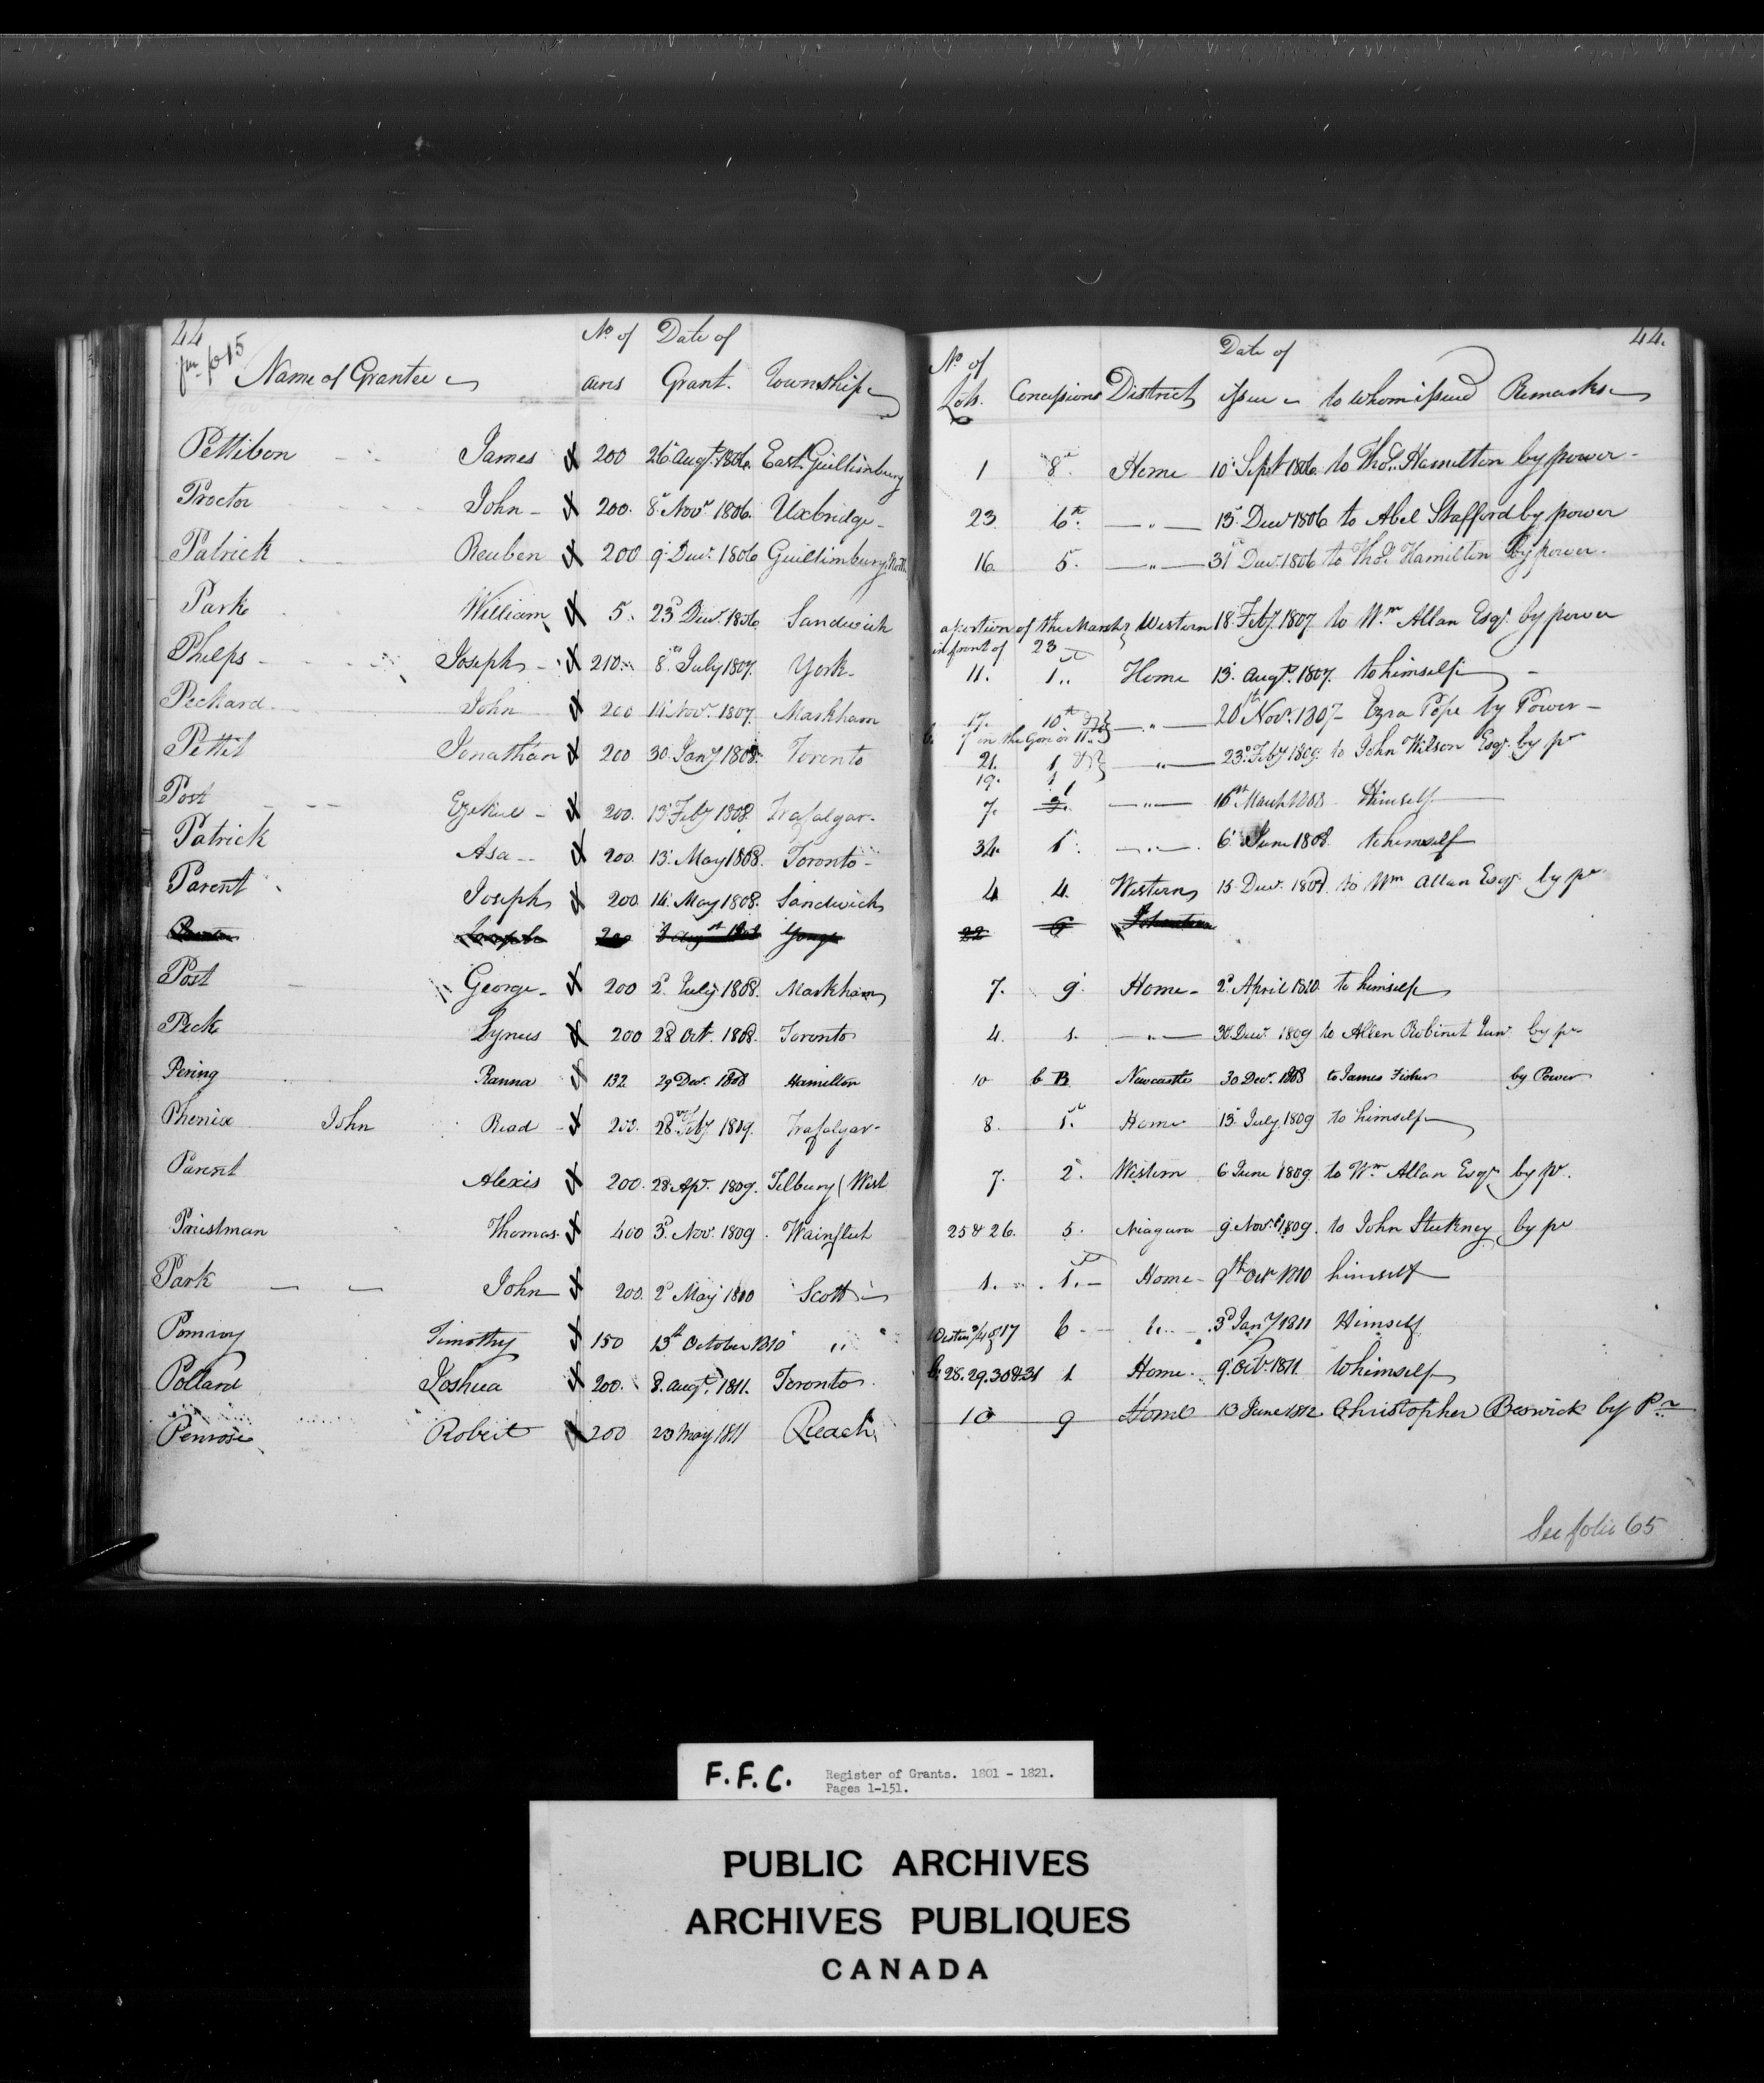 44
fm fo 15
No of Date of
Name of Grantee acres Grant. Township
44.
No of Date of
Lots. Concessions District issue to whom issued Remarks
Pettibon James 200 26 Augt. 1806. East Guillimbury 1 8 Home 10 Sept 1806 to Thos. Hamilton by power
Proctor John 200. 8 Novr 1806. Uxbridge 23 6th " 15 Decr 1806 to Abel Stafford by power
Patrick Reuben 200 9 Decr. 1806 Guillimbury North 16 5. " 31 Decr. 1806 to Thos. Hamilton by power
Park William 5. 23d Decr. 1806 Sandwich a portion of the Marsh in front of 23 Western 18 Feby. 1807 to Wm Allan Esqr. by power
Phelps Joseph 210 8th July 1807. York 11. 1 Home 13 Augt. 1807. to himself
Peckard John 200 14 Novr. 1807. Markham 17. 10th " 20th Novr. 1807 Ezra Pope by Power
7 in the Gore or 11
Pettit Jonathan 200 30 Jany 1808 Toronto 21. 1 " 23d Feby 1809. to John Wilson Esqr. by pr
19. 1
Post Ezekiel 200. 13 Feby 1808 Trafalgar 7. 2. 1 " 16th March 1808 Himself
Patrick Asa 200 13 May 1808. Toronto 34. 1 " 6 June 1808. to himself
Parent Joseph 200 14 May 1808. Sandwich 4 4. Western 15 Decr. 1808 to Wm Allan Esqr. by pr
200 8 Augst 1808 Yonge 22 6 Johnstown
Post George 200 2d July 1808. Markham 7. 9 Home 2d April 1810 to himself
Peck Lyneus 200 28 Oct. 1808. Toronto 4. 1. " 30 Decr. 1809 to Allen Robinet Junr by pr
Pering Ranna 132 29 Decr. 1808 Hamilton 10 b B Newcastle 30 Decr. 1808 to James Fisher by Power
Phenix John Read 200. 28 Feby 1809. Trafalgar 8. 1. Home 15 July 1809 to himself
Parent Alexis 200. 28 Apr. 1809. Tilbury (West 7. 2. Western 6 June 1809 to Wm Allan Esqr by pr.
Priestman Thomas. 400 3d. Novr. 1809. Wainfleet 25 & 26. 5. Niagara 9 Novr. 1809. to John Stukney by pr
Park John 200. 2d May 1810 Scott 1. 1. Home 9th Octr 1810 himself
Pomroy Timothy 150 13th October 1810 " 17 6 3d Jany 1811 Himself
Pollard Joshua 200. 8. Augt. 1811. Toronto b. 28. 29. 30 & 31 1 Home. 9 Octr. 1811. to himself
Penrose Robert 200 23 May 1811 Reach 10 9 Home 13 June 1812 Christopher Beswick by Pr
See folio 65
F.F.C. Register of Grants. 1801 - 1821.
Pages 1-151.
PUBLIC ARCHIVES
ARCHIVES PUBLIQUES
CANADA